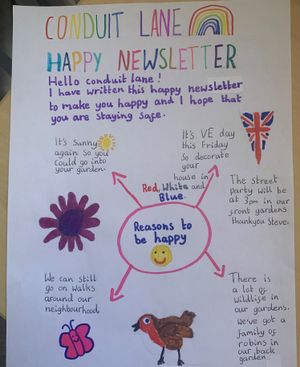 CONDUIT LANE
HAPPY NEWSLETTER
Hello conduit lane!
I have written this happy newsletter
to make you happy and I hope that
you are staying safe.
It's sunny
again so you
could go into
your garden.
It's VE day
this Friday
so decorate
your
house in
Red, White and
Blue.
The street
party will be
at 3pm in our
front gardens
thankyou Steve.
Reasons to
be happy
We can still
go on walks
around our
neighbourhood
There is
a lot of
wildlife in
our gardens.
we've got a
family of
robins in
our back
garden